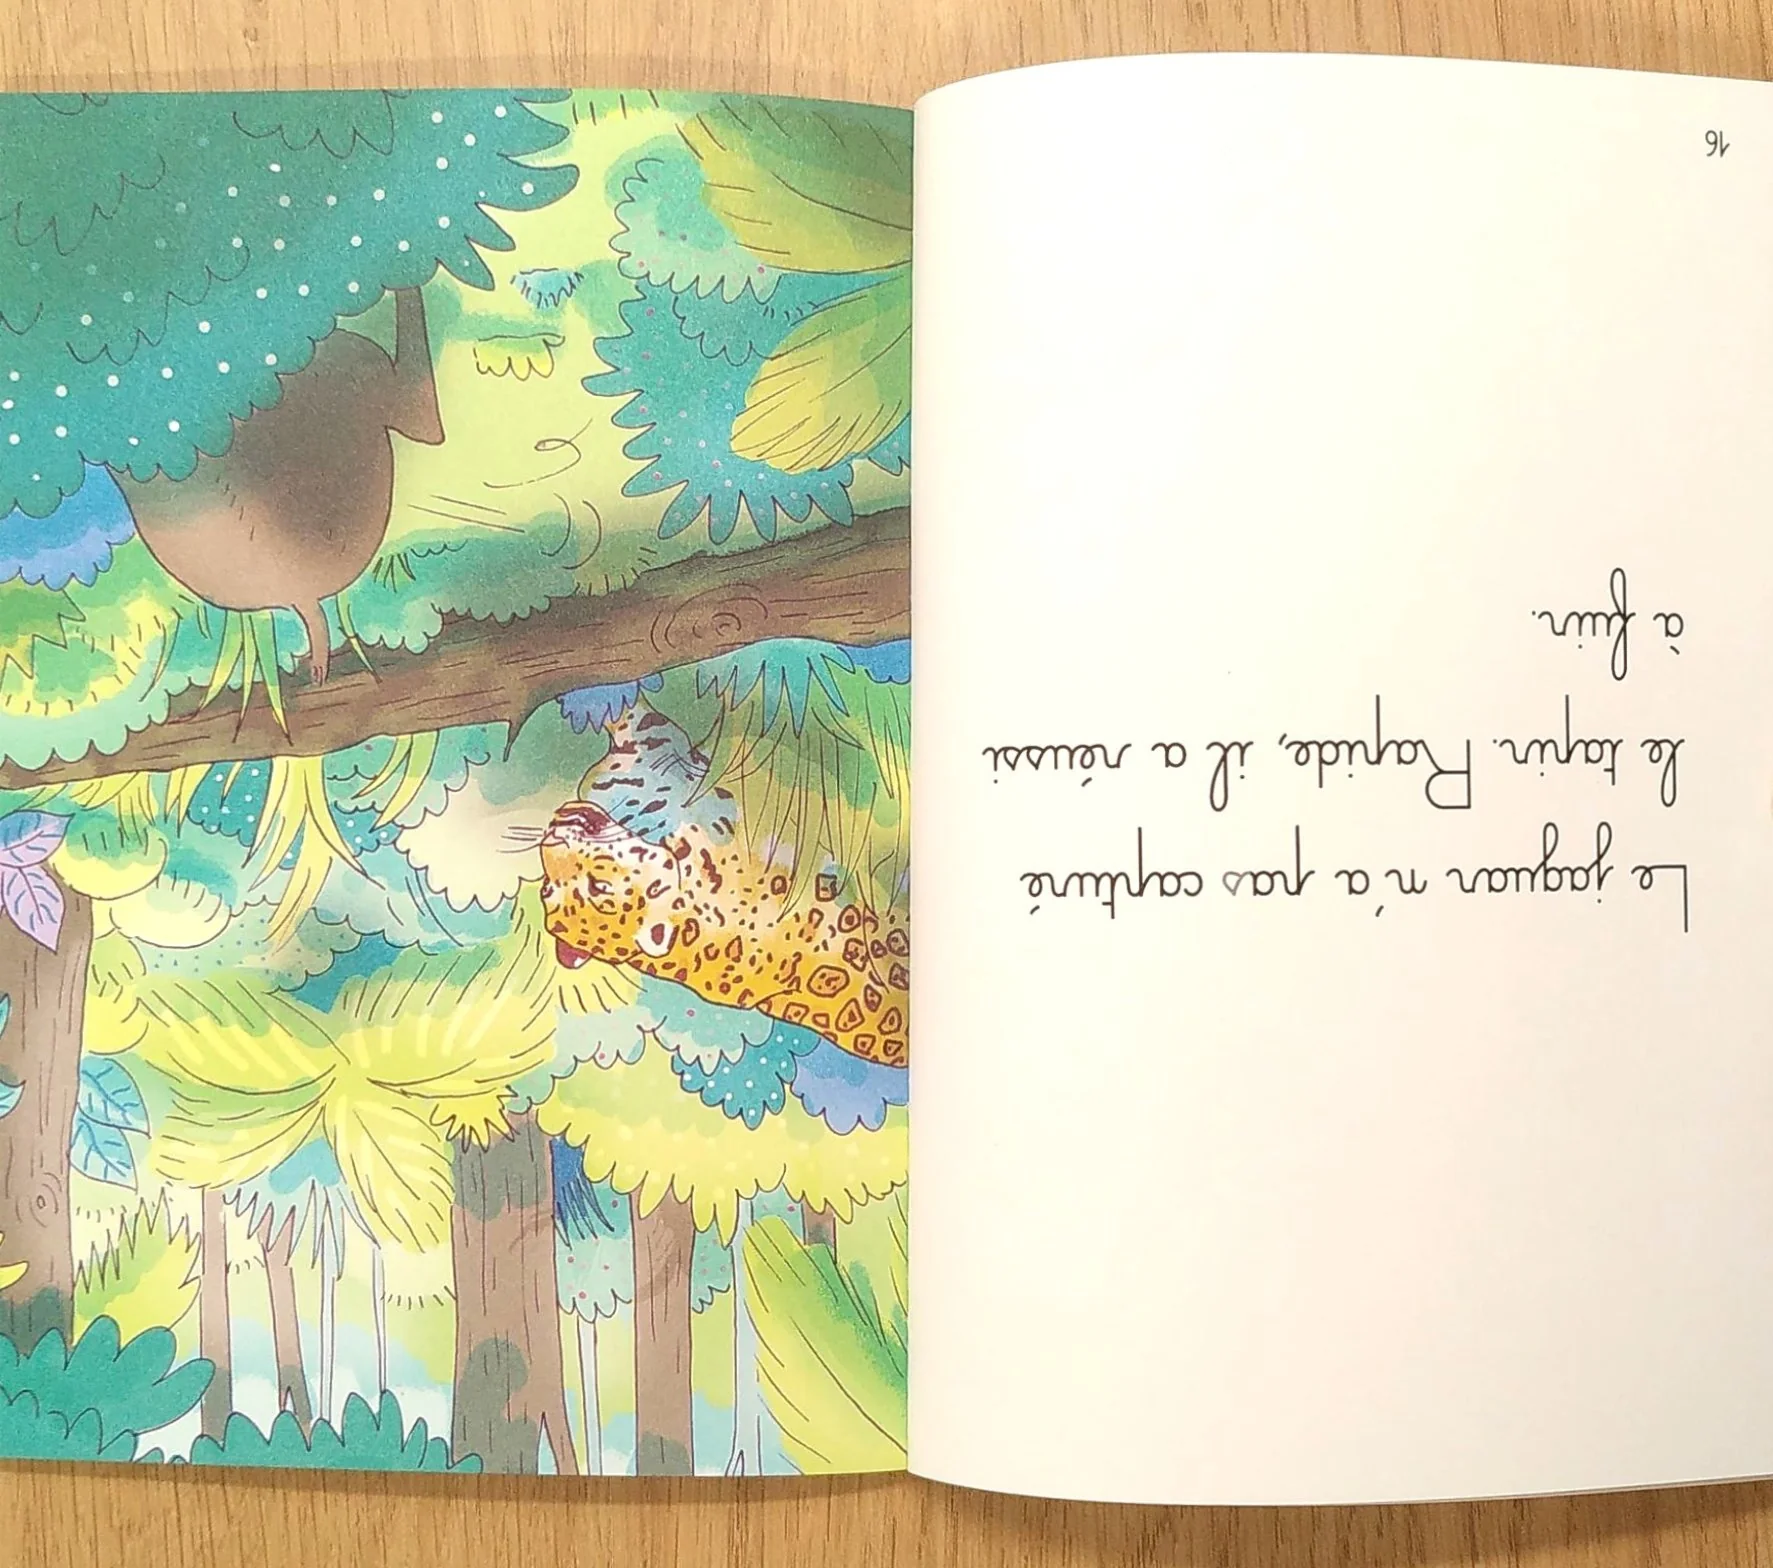 Le jaguar n'a pas capturé
le tapir. Rapide, il a réussi
à fuir.
16